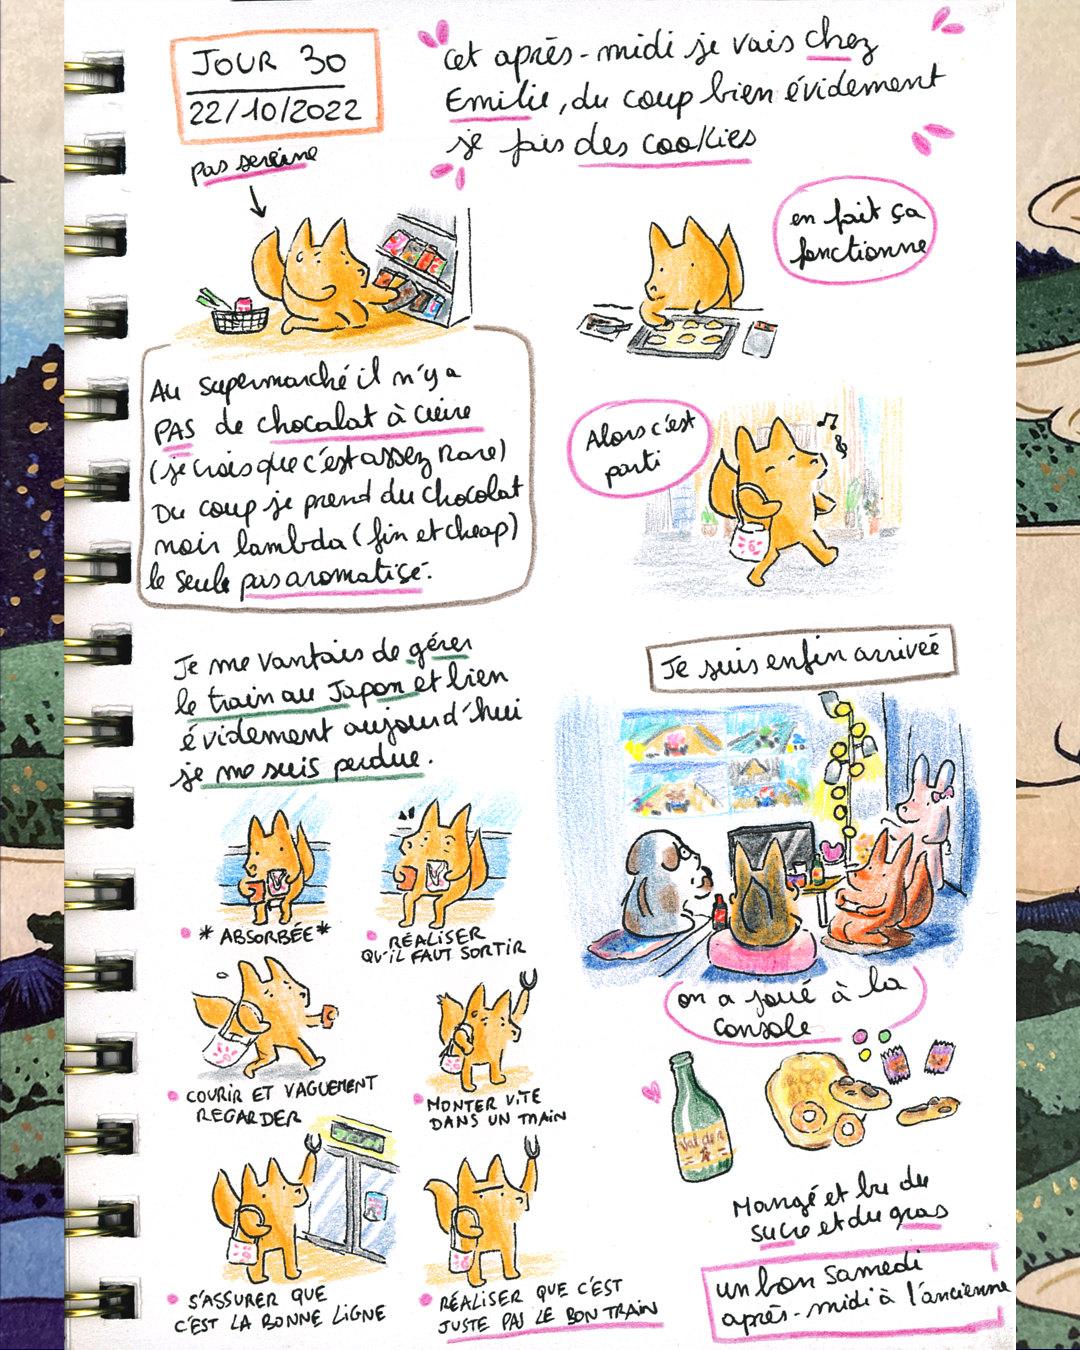 JOUR 30
22/10/2022
pas sereine
cet après-midi je vais chez
Emilie, du coup bien évidement
je fais des cookies
Au supermarché il n'y a
PAS de chocolat à cuire
(je crois que c'est assez rare)
Du coup je prend du chocolat
noir lambda (fin et cheap)
le seule pas aromatisé.
en fait ça
fonctionne
Alors c'est
parti
Je me vantais de gérer
le train au Japon et bien
évidement aujourd'hui
je me suis perdue.
* ABSORBÉE *
RÉALISER
QU'IL FAUT SORTIR
COURIR ET VAGUEMENT
REGARDER
MONTER VITE
DANS UN TRAIN
S'ASSURER QUE
C'EST LA BONNE LIGNE
RÉALISER QUE C'EST
JUSTE PAS LE BON TRAIN
Je suis enfin arrivée
on a joué à la
console
Mangé et bu du
sucre et du gras
un bon samedi
après-midi à l'ancienne